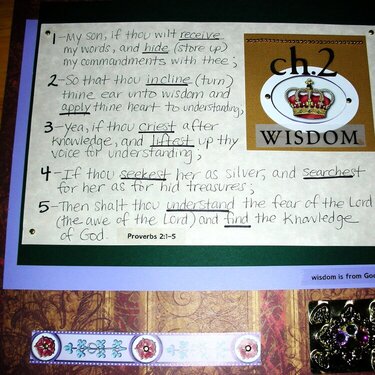 1-My son, if thou wilt receive
my words, and hide (store up)
my commandments with thee;
2-So that thou incline (turn)
thine ear unto wisdom and
apply thine heart to understanding,
3-Yea, if thou criest after
knowledge, and liftest up thy
voice for understanding;
4-If thou seekest her as silver, and searchest
for her as for hid treasures;
5-Then shalt thou understand the fear of the Lord
(the awe of the Lord) and find the Knowledge
of God.
Proverbs 2:1-5
ch.2
WISDOM
wisdom is from God